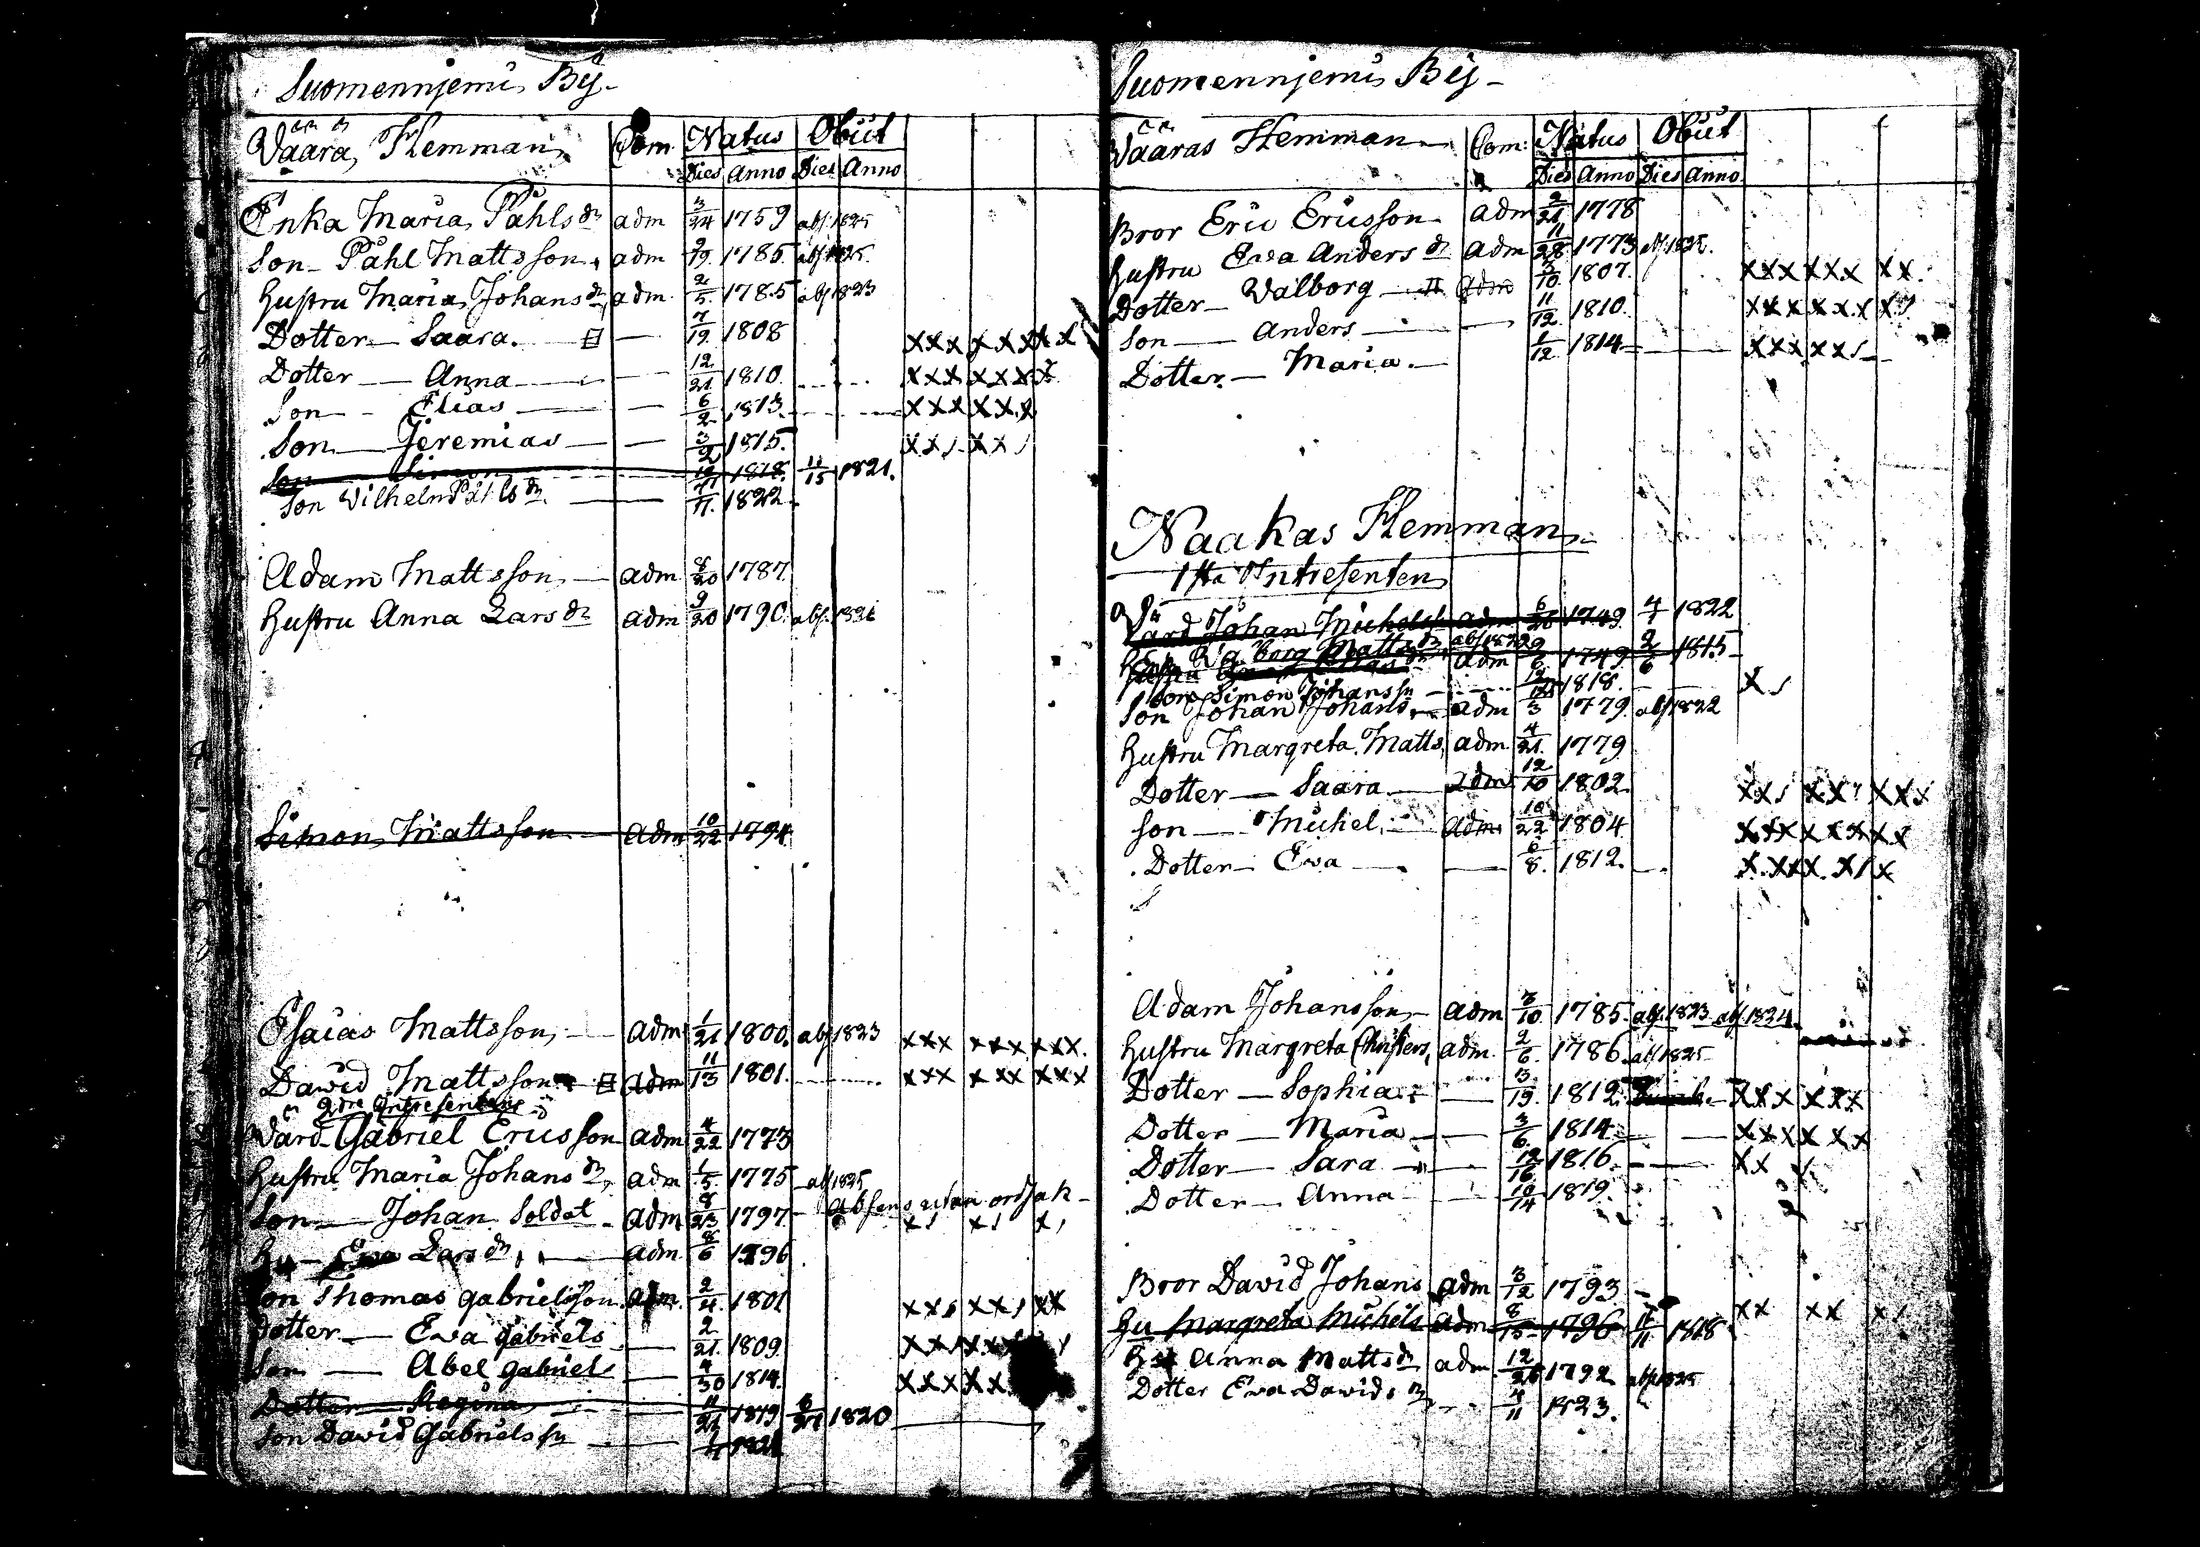 Suomennjemi Bÿ
Vaara Hemman Com. Natus Obiit
Dies Anno Dies Anno
Enka Maria Påhls dr adm 3/24 1759 abs. 1825
Son Påhl Mattsson adm 9/19 1785 abs. 1825
Hustru Maria Johans dr adm 2/5 1785 abs 1823
Dotter Saara 7/19 1808 xxx xxx x x
Dotter Anna 12/21 1810 xxx xxxx
Son Elias 6/2 1813 xxx xxx
Son Jeremias 3/2 1815 xx xx
Son Simon 1818 11/15 1821
Son Wilhelm Påhls 7/11 1822
Adam Mattsson adm 8/20 1787
Hustru Anna Lars dr adm 9/20 1790 abs.
Simon Mattsson adm 10/22 1794
Esaias Mattsson adm 1/21 1800 abs 1823 xxx xxx xxx
David Mattsson adm 11/13 1801 xxx xxx xxx
2dre Intresenten
Värd Gabriel Ericsson adm 4/22 1773
Hustru Maria Johans dr adm 1/5 1775 abs 1825
Son Johan Soldat adm 8/23 1797 Absens utan orsak
x x x
Hu Eva Lars dr adm 8/6 1796
Son Thomas Gabrielsson adm 2/4 1801 xx xx xx
Dotter Eva Gabriels 2/21 1809
Son Abel Gabriels 4/30 1814
Dotter Regina 11/21 1819 1820
Son David Gabrielsson
Suomennjemi Bÿ
Vaaras Hemman Com: Natus Obiit
Dies Anno Dies Anno
Bror Eric Ericsson adm 2/21 1778
Hustru Eva Anders dr adm 11/28 1773 abs 1825
Dotter Walborg adm 3/10 1807 xxx xxx xx
Son Anders 11/12 1810 xxx xxx x
Dotter Maria 1/12 1814 xxx xx
Naakas Hemman
1sta Intresenten
Värd Johan Michelss adm 6/26 1749 4/7 1822
Walborg Matts dr abs 1822
Hustru adm 9/6 1749 2/6 1815
Son Simon Johanss 1818 x
Son Johan Johans adm 1/3 1779 abs 1822
Hustru Margreta Matts adm 4/21 1779
Dotter Saara adm 12/10 1802 xx xx xxx
Son Michel adm 10/22 1804 xxx xxx xx
Dotter Eva 6/8 1812
Adam Johansson adm 3/10 1785 abs. 1823 abs. 1824
Hustru Margreta Christers adm 2/6 1786 abs 1825
Dotter Sophia 3/19 1812 xxx xxx
Dotter Maria 3/6 1814 xxx xx
Dotter Sara 12/16 1816 xx
Dotter Anna 10/14 1819
Bror David Johans adm 3/12 1793 xx xx x
Hu Margreta Michels adm 8/15 1796 1818
Hu Anna Matts dr adm 12/26 1792 abs 1825
Dotter Eva Davids dr 4/11 1823